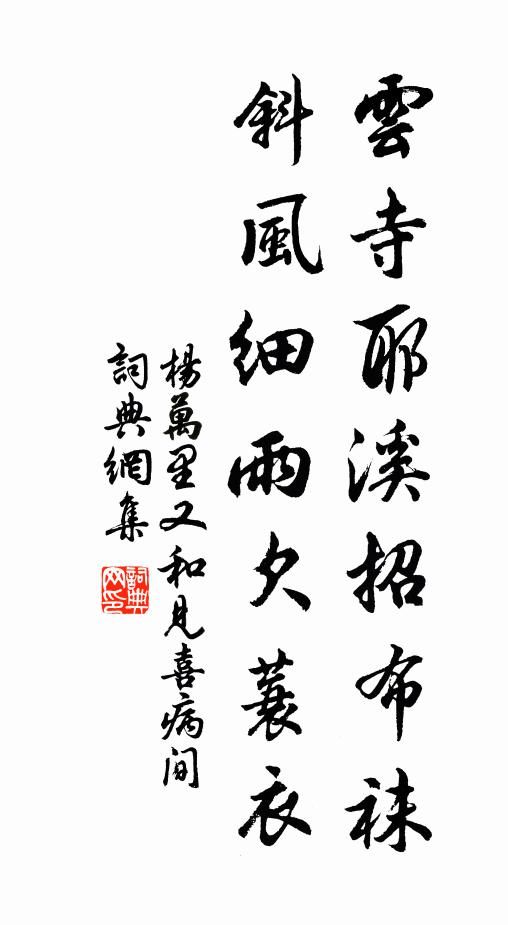 雲寺耶溪招布袜
斜風細雨欠蓑衣
楊萬里又和見喜病間
詞典網集
詞典网印